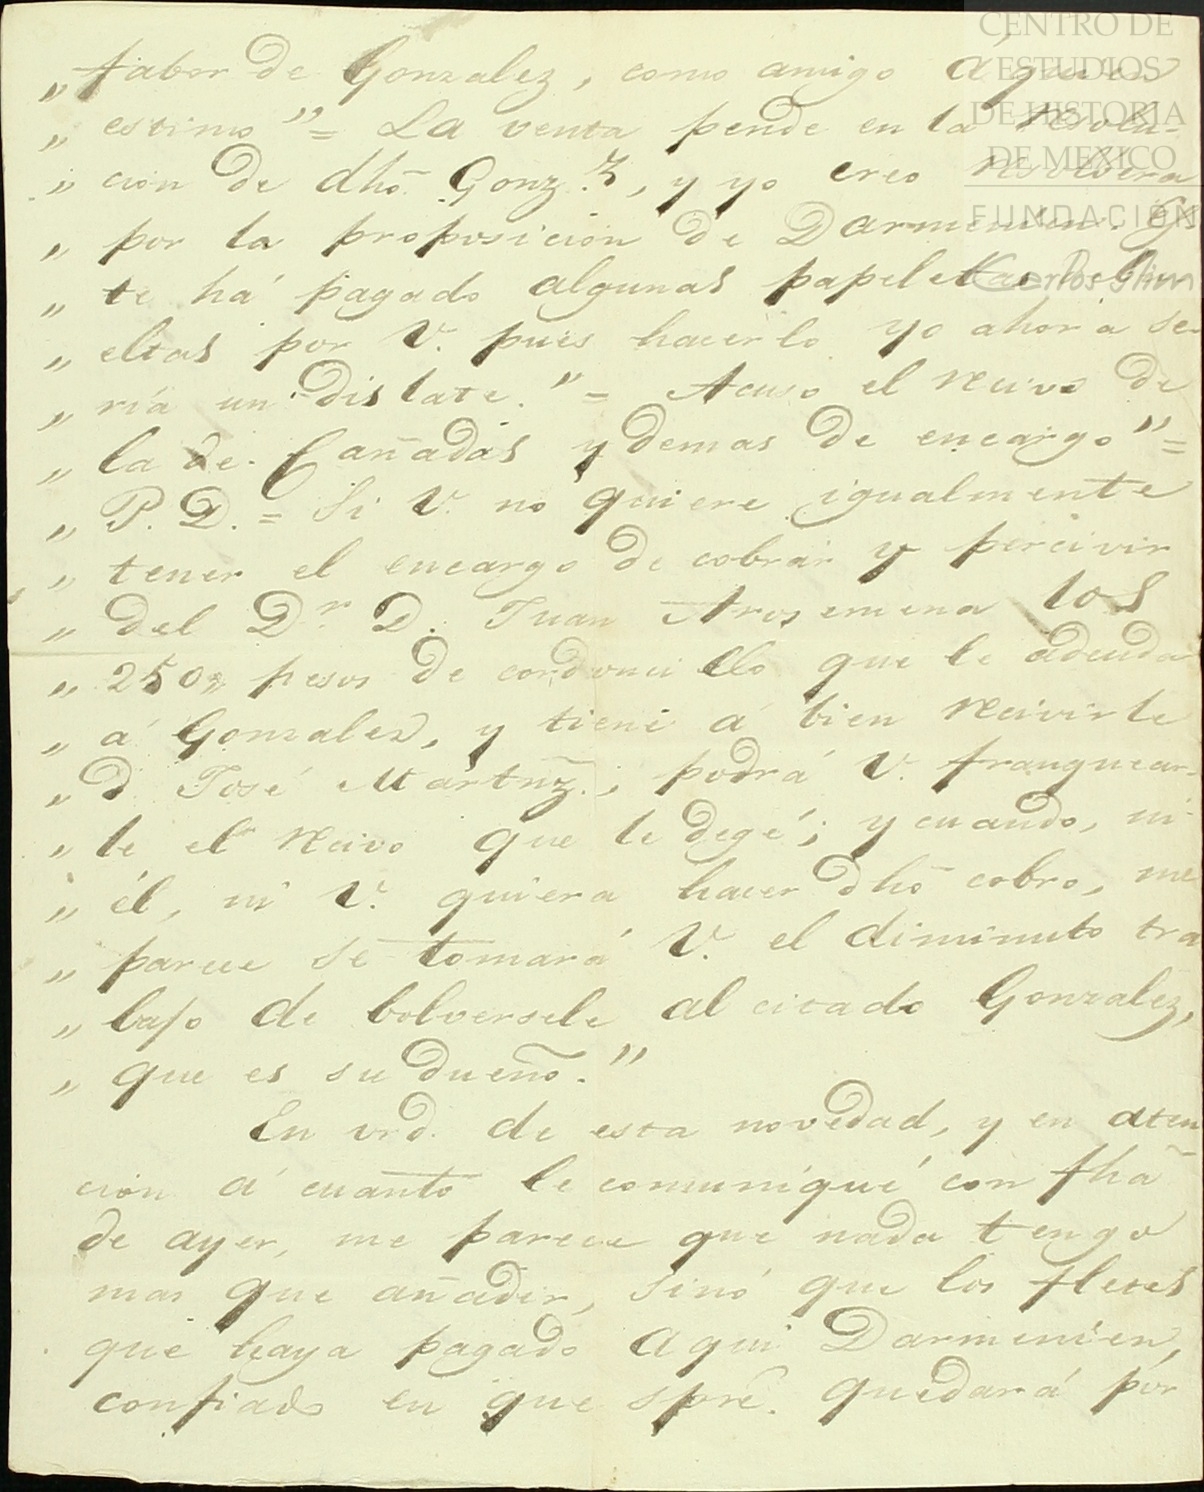 CENTRO DE
ESTUDIOS
DE HISTORIA
DE MEXICO
FUNDACIÓN
Carlos Slim
„ fabor de Gonzalez, como amigo á quien
„ estimo” = La venta pende en la resolu-
„ cion de dhō Gonz.z, y yo creo resolvera
„ por la proposicion de Darmenien.
„ te há pagado algunas papeletas
„ eltas por V. pues hacerlo yo ahora se-
„ ría un dislate.” = Acuso el recivo de
„ la de Cañadas y demas de encargo” =
„ P. D. = Si V. no quiere igualmente
„ tener el encargo de cobrar y percivir
„ del Dr. D. Juan Arosemena los
„ 250„ pesos de cordoncillo que le adeuda
„ á Gonzalez, y tiene á bien recivirle
„ d. José Martnz., podrá V. franquear-
„ le el recivo que le degé; y cuando, ni
„ él, ni V. quiera hacer dhō cobro, me
„ parece se tomará V. el diminuto tra
„ bajo de bolversele al citado Gonzalez,
„ que es su dueño.”
En vrd. de esta novedad, y en aten
cion á cuanto le comuniqué con fhā
de ayer, me parece que nada tengo
mas que añadir, sinó que los fletes
que haya pagado aqui Darmenien,
confiado en que spre. quedará por